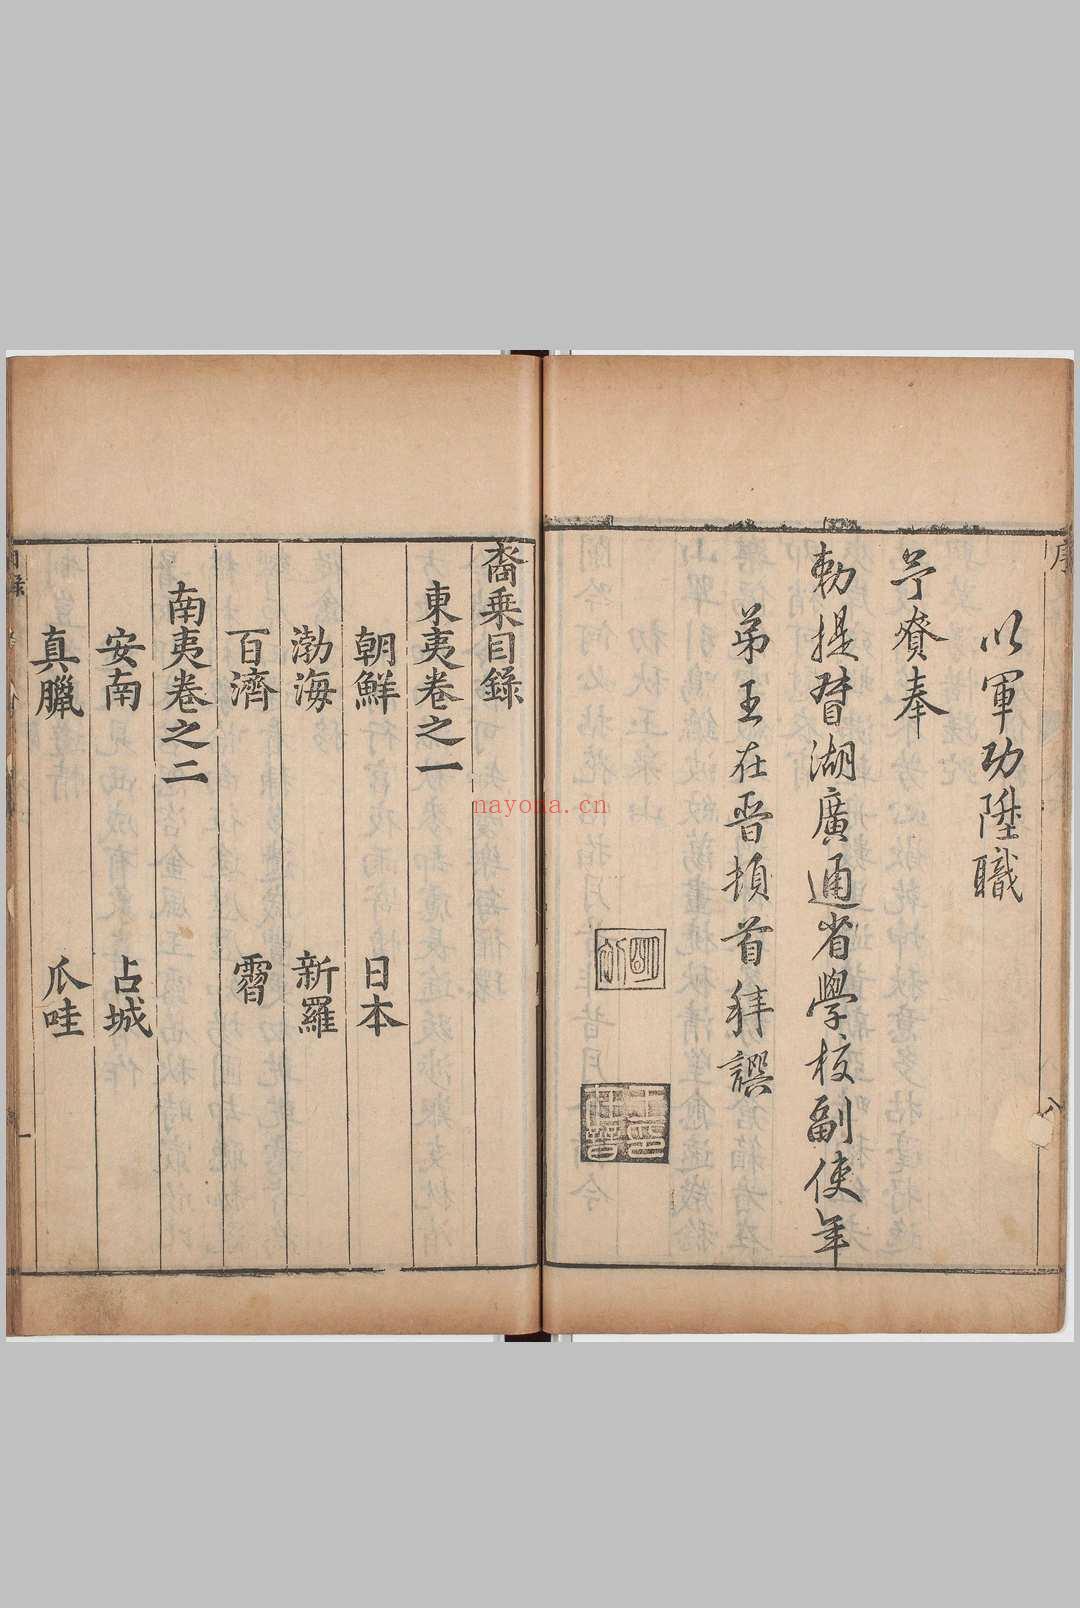 序
以軍功陞職
予賚奉
勅提督湖廣通省學校副使年
弟王在晉頓首拜譔
八
裔乗目錄
東夷卷之一
朝鮮 日本
渤海 新羅
百濟 霫
南夷卷之二
安南 占城
真臘 瓜哇
目錄
一
nayona.cn